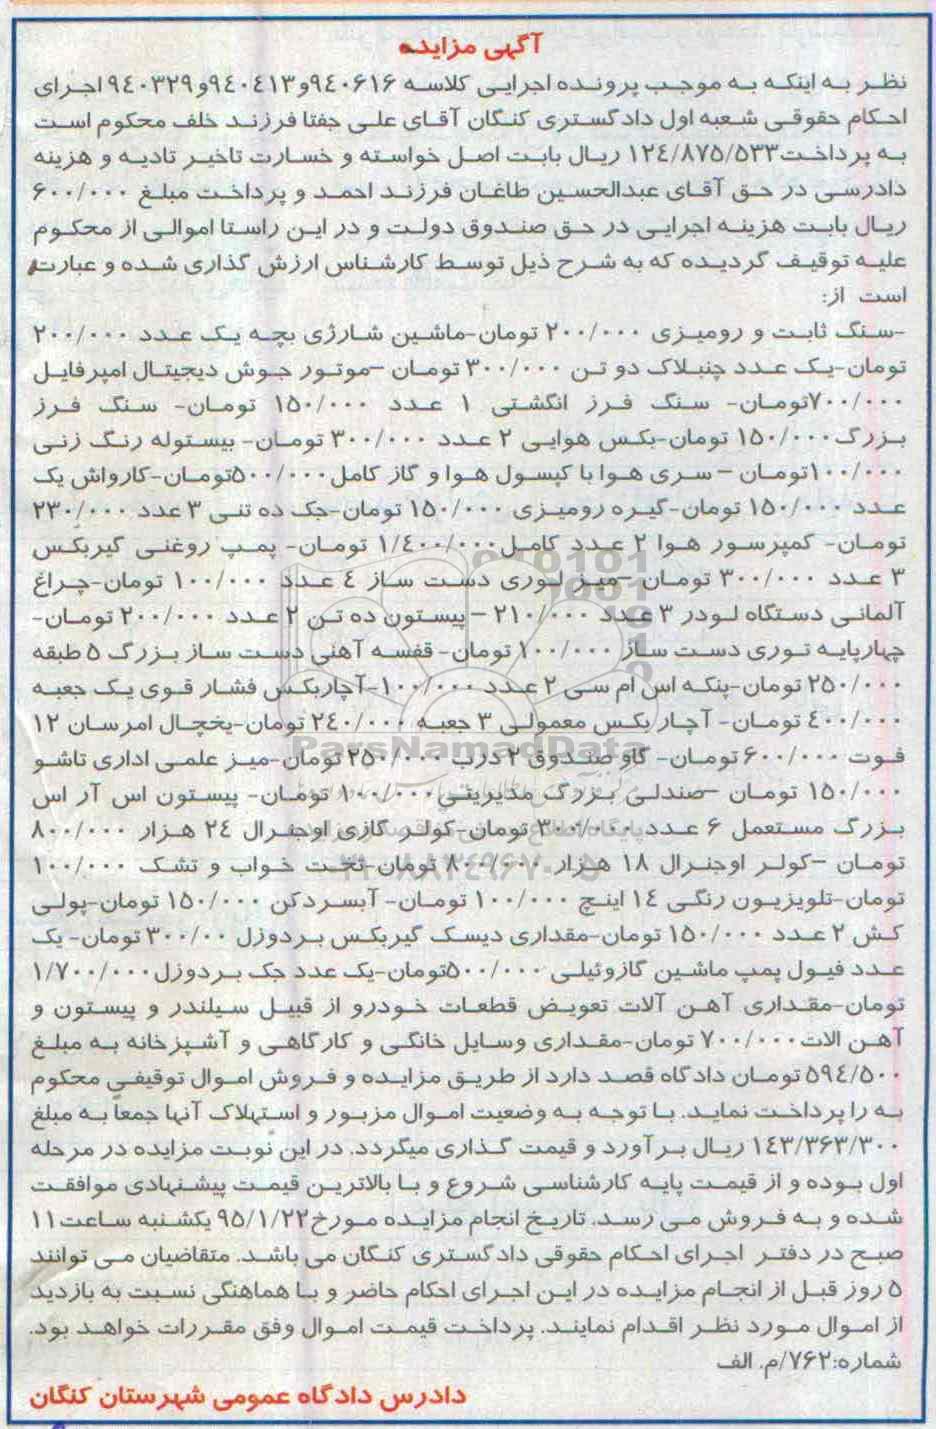 آگهی مزایده
نظر به اینکه به موجب پرونده اجرایی کلاسه ۹٤۰۶۱۶و۹٤۰٤۱۳و۹٤۰۳۲۹ اجرای
احکام حقوقی شعبه اول دادگستری کنگان آقای علی جفتا فرزند خلف محکوم است
به پرداخت۱۲٤/۸۷۵/۵۳۳ ریال بابت اصل خواسته و خسارت تاخیر تادیه و هزینه
دادرسی در حق آقای عبدالحسین طاغان فرزند احمد و پرداخت مبلغ ۶۰۰/۰۰۰
ریال بابت هزینه اجرایی در حق صندوق دولت و در این راستا اموالی از محکوم
علیه توقیف گردیده که به شرح ذیل توسط کارشناس ارزش گذاری شده و عبارت
است از:
-سنگ ثابت و رومیزی ۲۰۰/۰۰۰ تومان-ماشین شارژی بچه یک عدد ۲۰۰/۰۰۰
تومان-یک عدد چنبلاک دو تن ۳۰۰/۰۰۰ تومان –موتور جوش دیجیتال امپرفایل
۷۰۰/۰۰۰تومان- سنگ فرز انگشتی ۱ عدد ۱۵۰/۰۰۰ تومان- سنگ فرز
بزرگ۱۵۰/۰۰۰ تومان-بکس هوایی ۲ عدد ۳۰۰/۰۰۰ تومان- بیستوله رنگ زنی
۱۰۰/۰۰۰تومان – سری هوا با کپسول هوا و گاز کامل۵۰۰/۰۰۰تومان-کارواش یک
عدد ۱۵۰/۰۰۰ تومان-گیره رومیزی ۱۵۰/۰۰۰ تومان-جک ده تنی ۳ عدد ۲۳۰/۰۰۰
تومان- کمپرسور هوا ۲ عدد کامل۱/٤۰۰/۰۰۰ تومان- پمپ روغنی گیربکس
۳ عدد ۳۰۰/۰۰۰ تومان –میز لوری دست ساز ٤ عدد ۱۰۰/۰۰۰ تومان-چراغ
آلمانی دستگاه لودر ۳ عدد ۲۱۰/۰۰۰ – پیستون ده تن ۲ عدد ۲۰۰/۰۰۰ تومان-
چهارپایه توری دست ساز ۱۰۰/۰۰۰ تومان- قفسه آهنی دست ساز بزرگ ۵ طبقه
۲۵۰/۰۰۰ تومان-پنکه اس ام سی ۲ عدد ۱۰۰/۰۰۰-آچاربکس فشار قوی یک جعبه
٤۰۰/۰۰۰ تومان- آچار بکس معمولی ۳ جعبه ۲٤۰/۰۰۰ تومان-یخچال امرسان ۱۲
فوت ۶۰۰/۰۰۰ تومان- گاو صندوق ۲ درب ۲۵۰/۰۰۰ تومان-میز علمی اداری تاشو
۱۵۰/۰۰۰ تومان –صندلی بزرگ مدیریتی۱۰۰/۰۰۰ تومان- پیستون اس آر اس
بزرگ مستعمل ۶ عدد ۳۰۰/۰۰۰ تومان-کولر گازی اوجنرال ۲٤ هزار ۸۰۰/۰۰۰
تومان –کولر اوجنرال ۱۸ هزار ۸۰۰/۰۰۰ تومان-تخت خواب و تشک ۱۰۰/۰۰۰
تومان-تلویزیون رنگی ۱٤ اینچ ۱۰۰/۰۰۰ تومان- آبسردکن ۱۵۰/۰۰۰ تومان-پولی
کش ۲ عدد ۱۵۰/۰۰۰ تومان-مقداری دیسک گیربکس بردوزل ۳۰۰/۰۰ تومان- یک
عدد فیول پمپ ماشین گازوئیلی ۵۰۰/۰۰۰تومان-یک عدد جک بردوزل۱/۷۰۰/۰۰۰
تومان-مقداری آهن آلات تعویض قطعات خودرو از قبیل سیلندر و پیستون و
آهن الات۷۰۰/۰۰۰ تومان-مقداری وسایل خانگی و کارگاهی و آشپزخانه به مبلغ
۵۹٤/۵۰۰ تومان دادگاه قصد دارد از طریق مزایده و فروش اموال توقیفی محکوم
به را پرداخت نماید. با توجه به وضعیت اموال مزبور و استهلاک آنها جمعاً به مبلغ
۱٤۳/۳۶۳/۳۰۰ ریال برآورد و قیمت گذاری میگردد. در این نوبت مزایده در مرحله
اول بوده و از قیمت پایه کارشناسی شروع و با بالاترین قیمت پیشنهادی موافقت
شده و به فروش می رسد. تاریخ انجام مزایده مورخ۹۵/۱/۲۲ یکشنبه ساعت۱۱
صبح در دفتر اجرای احکام حقوقی دادگستری کنگان می باشد. متقاضیان می توانند
۵ روز قبل از انجام مزایده در این اجرای احکام حاضر و با هماهنگی نسبت به بازدید
از اموال مورد نظر اقدام نمایند. پرداخت قیمت اموال وفق مقررات خواهد بود.
شماره:۷۶۲/م. الف
دادرس دادگاه عمومی شهرستان کنگان
ParsNamadData